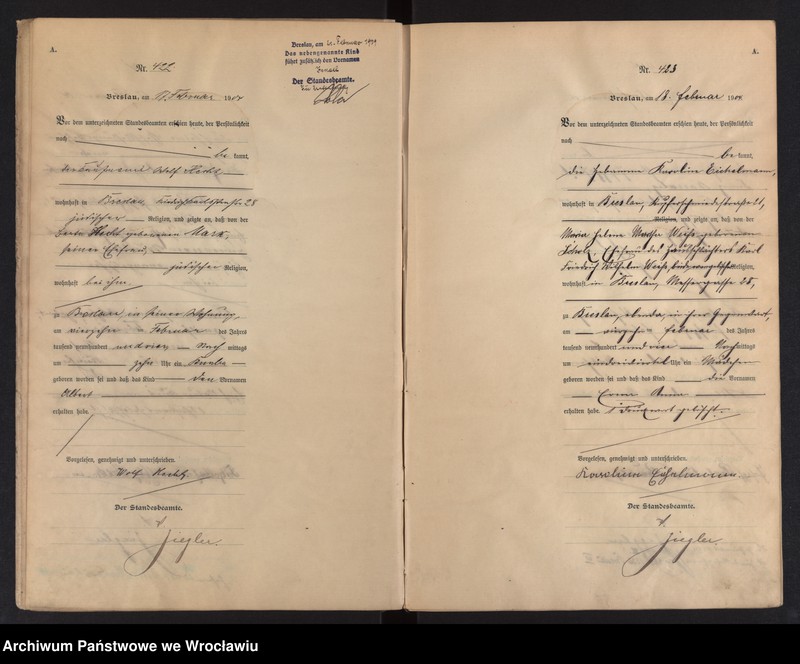 A.
Nr. 422
Breslau, am Februar 1904
Breslau, am Februar 1939
Das nebengenannte Kind
führt zusätzlich den Vornamen
Israel
Der Standesbeamte.
Vor dem unterzeichneten Standesbeamten erschien heute, der Persönlichkeit
nach
be kannt,
Wolf Hecht,
wohnhaft in Breslau, 28
jüdischer Religion, und zeigte an, daß von der
Hecht geborenen Marx,
seiner Ehefrau,
jüdischer Religion,
wohnhaft bei ihm,
zu Breslau in seiner Wohnung,
am vierzehn ten Februar des Jahres
tausend neunhundert und vier Nach mittags
um zehn Uhr ein Knabe
geboren worden sei und daß das Kind den Vornamen
Albert
erhalten habe.
Vorgelesen, genehmigt und unterschrieben.
Wolf Hecht.
Der Standesbeamte.
Ziegler.
A.
Nr. 423
Breslau, am 18. Februar 1904
Vor dem unterzeichneten Standesbeamten erschien heute, der Persönlichkeit
nach
be kannt,
die Hebamme Karoline Eichelmann,
wohnhaft in Breslau, Kupferschmiedestraße 21,
Religion, und zeigte an, daß von der
Maria Helene Martha Weiße geborenen
Scholz, Ehefrau des Karl
Friedrich Wilhelm Weiße, Religion,
wohnhaft in Breslau, Messergasse 28,
zu Breslau, ebenda, in ihrer Gegenwart,
am vierzehn ten Februar des Jahres
tausend neunhundert und vier Nachmittags
um Uhr ein Mädchen
geboren worden sei und daß das Kind die Vornamen
Erna Anna
erhalten habe.
Vorgelesen, genehmigt und unterschrieben.
Karoline Eichelmann.
Der Standesbeamte.
Ziegler.
Archiwum Państwowe we Wrocławiu